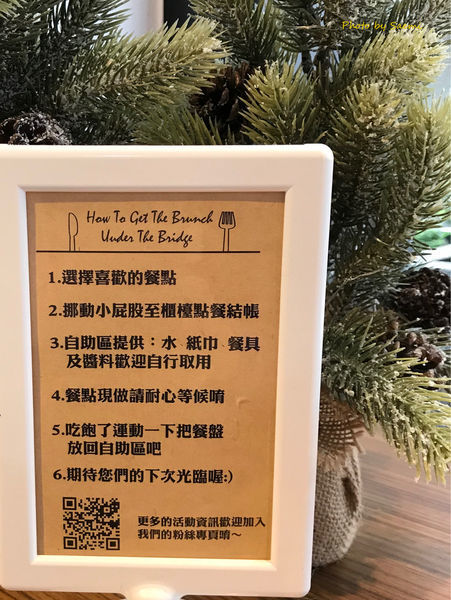 Photo by Sa
How To Get The Brunch
Under The Bridge
1.選擇喜歡的餐點
2.挪動小屁股至櫃檯點餐結帳
3.自助區提供：水 紙巾 餐具
及醬料歡迎自行取用
4.餐點現做請耐心等候唷
5.吃飽了運動一下把餐盤
放回自助區吧
6.期待您們的下次光臨喔:)
更多的活動資訊歡迎加入
我們的粉絲專頁唷～